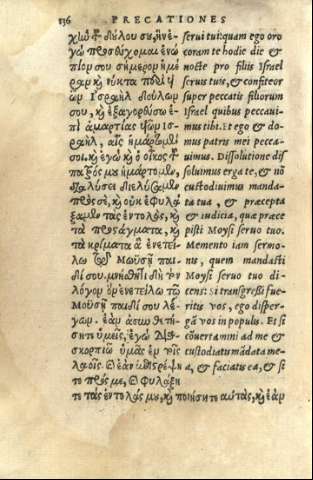 136 PRECATIONES
χῆς τ͂ δούλου σου, ἣν ἐ-
γὼ προσεύχομαι ἐνώ
πιόν σου σήμερον ἡμέ
ραν κὴ νύκτα περὶ
Ισραὴλ δούλων
σου, κὴ ἐξαγορεύσω ἐ-
πὶ ἁμαρτίας Ισ-
ραὴλ, αἷς ἡμάρτομέν
σοι, κὴ ἐγὼ κὴ ὁ οἶκος τ͂
πατρός μου ἡμάρτομεν,
διαλύσει διελύσαμεν
πρὸς σὲ, κὴ οὐκ ἐφυλά
ξαμεν τὰς ἐντολὰς, κὴ
τὰ προστάγματα, κὴ
τὰ κρίματα ἃ ἐνετεί
λω Μωυσῇ παι-
δί σου. μνήσθητι δὴ τὸν
λόγον ὃν ἐνετείλω τῷ
Μωυσῇ παιδί σου λέ-
γων. ἐὰν ἀσυνθετή-
σητε ὑμεῖς, ἐγὼ δια-
σκορπιῶ ὑμᾶς ἐν τοῖς
λαοῖς. κὴ ἐὰν ἐπιστρέψη
τε πρός με, κὴ φυλάξη
τε τὰς ἐντολάς μου, κὴ ποιήσητε αὐτὰς, κὴ ἐὰν
serui tui: quam ego oro
coram te hodie die et
nocte pro filiis Israel
seruis tuis, & confiteor
super peccatis filiorum
Israel quibus peccaui-
mus tibi. Et ego & do-
mus patris mei pecca-
uimus. Dissolutione dis
soluimus erga te, & nō
custodiuimus manda-
ta tua, & præcepta
& iudicia, quæ præce
pisti Moysi seruo tuo.
Memento iam sermo-
nis, quem mandasti
Moysi seruo tuo di-
cens: Si transgressi fue-
ritis vos, ego disper-
gā vos in populis. Et si
cōuertamini ad me &
custodiatis mādata me-
a, & faciatis ea, & si